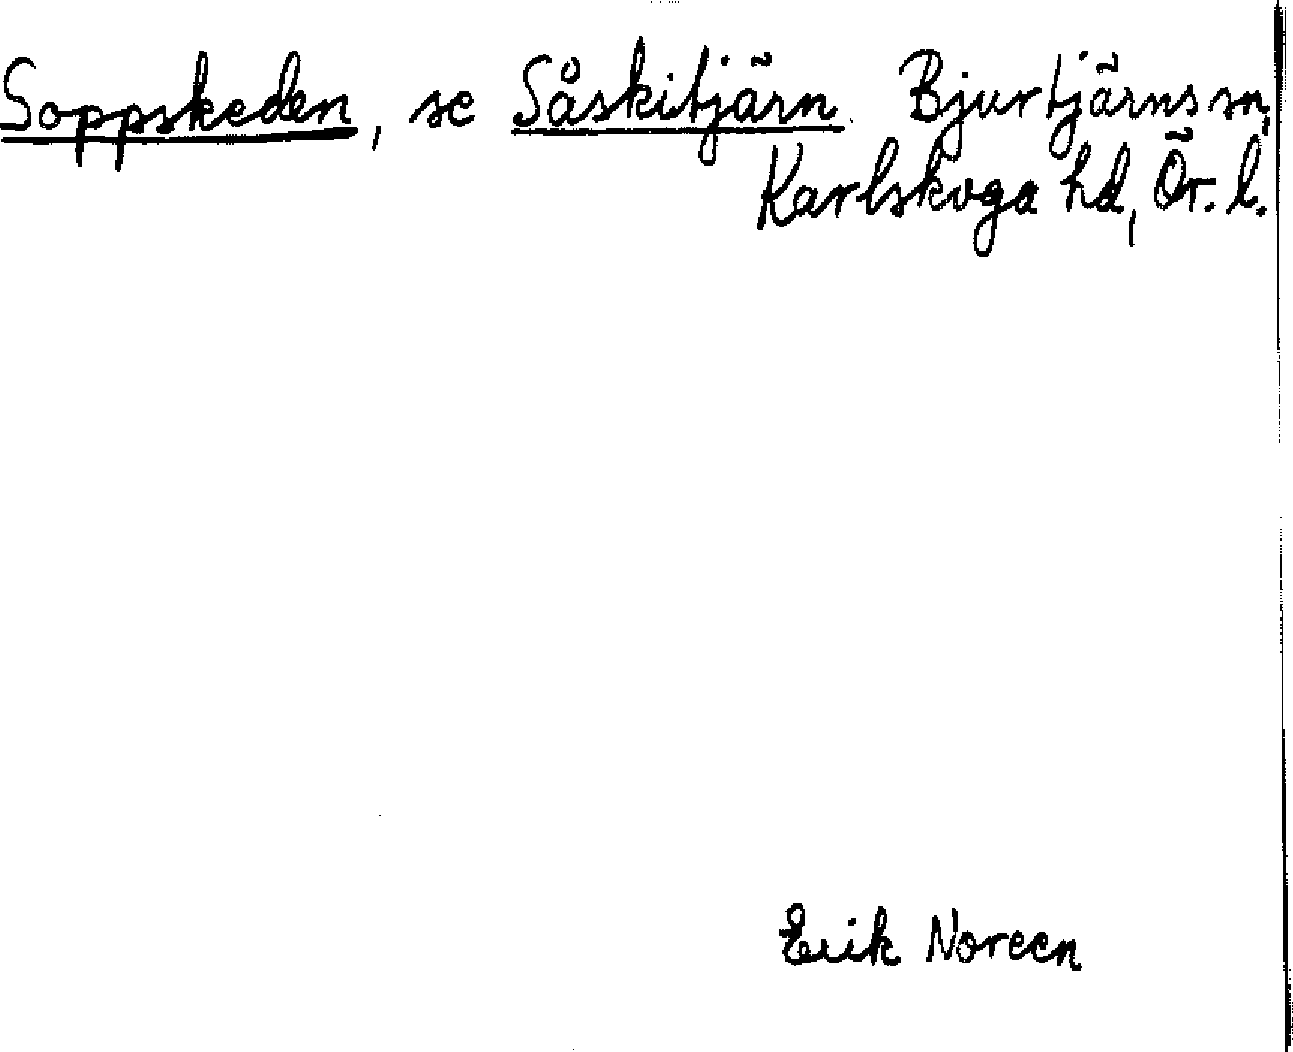 Soppskeden, se Såskitjärn. Bjurtjärns sn,
Karlskoga hd, Ör. l.
Erik Noreen